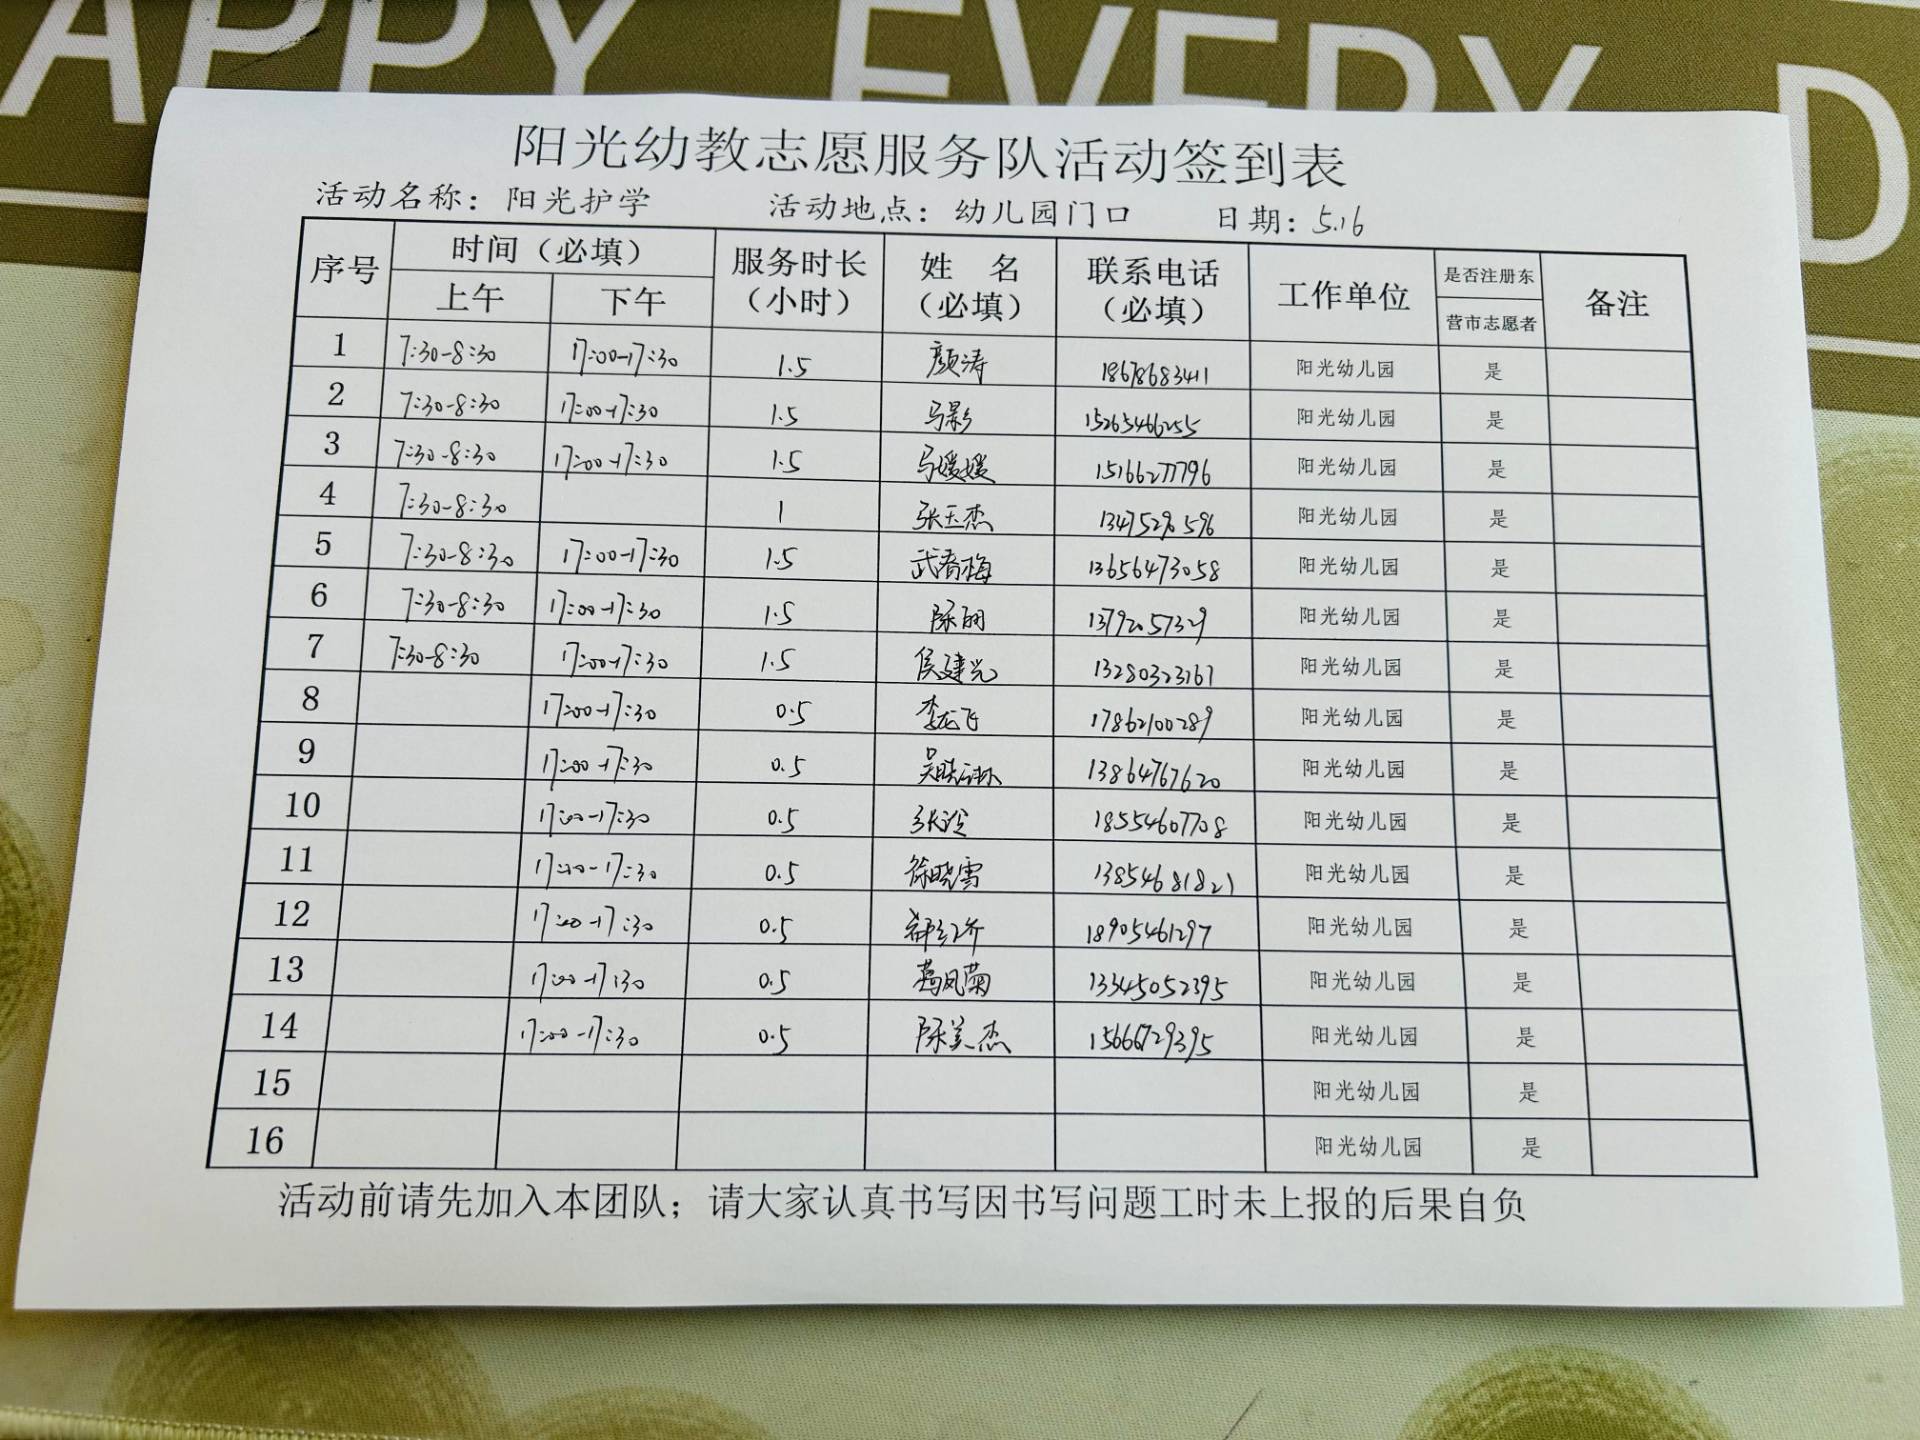 APPY EVERY D
阳光幼教志愿服务队活动签到表
活动名称：阳光护学 活动地点：幼儿园门口 日期：5.16
序号 时间（必填） 上午 下午 服务时长（小时） 姓 名（必填） 联系电话（必填） 工作单位 是否注册东营市志愿者 备注
1 7:30-8:30 17:00-17:30 1.5 颜涛 18678683411 阳光幼儿园 是
2 7:30-8:30 17:00-17:30 1.5 马影 15265466255 阳光幼儿园 是
3 7:30-8:30 17:00-17:30 1.5 马媛媛 15166277796 阳光幼儿园 是
4 7:30-8:30 1 张玉杰 13475290596 阳光幼儿园 是
5 7:30-8:30 17:00-17:30 1.5 武春梅 13656473058 阳光幼儿园 是
6 7:30-8:30 17:00-17:30 1.5 陈丽 13792057329 阳光幼儿园 是
7 7:30-8:30 17:00-17:30 1.5 侯建光 13280323167 阳光幼儿园 是
8 17:00-17:30 0.5 李龙飞 17862100289 阳光幼儿园 是
9 17:00-17:30 0.5 13864767620 阳光幼儿园 是
10 17:00-17:30 0.5 18554607708 阳光幼儿园 是
11 17:00-17:30 0.5 徐晓雪 13854681821 阳光幼儿园 是
12 17:00-17:30 0.5 18905461297 阳光幼儿园 是
13 17:00-17:30 0.5 葛凤菊 13345052395 阳光幼儿园 是
14 17:00-17:30 0.5 陈美杰 15666729395 阳光幼儿园 是
15 阳光幼儿园 是
16 阳光幼儿园 是
活动前请先加入本团队；请大家认真书写因书写问题工时未上报的后果自负